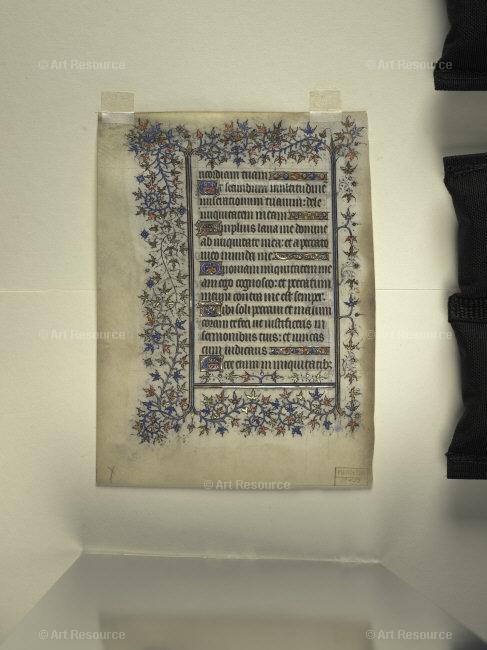 © Art Resource
© Art Resource
ricordiam tuam
Et secundum multitudine
miserationum tuarum: dele
iniquitatem meam
Amplius laua me domine
ad iniquitate mea: et a peccato
meo munda me
Quoniam iniquitatem me
am ego cognosco: et peccatum
meum contra me est semper.
Tibi soli peccaui et malum
coram te feci ut iustificeris in
sermonibus tuis: et uincas
cum iudicaris
Ecce enim in iniquitatib;
© Art Resource
© Art Resource
© Art Resource
© Art Resource
© Art Resource